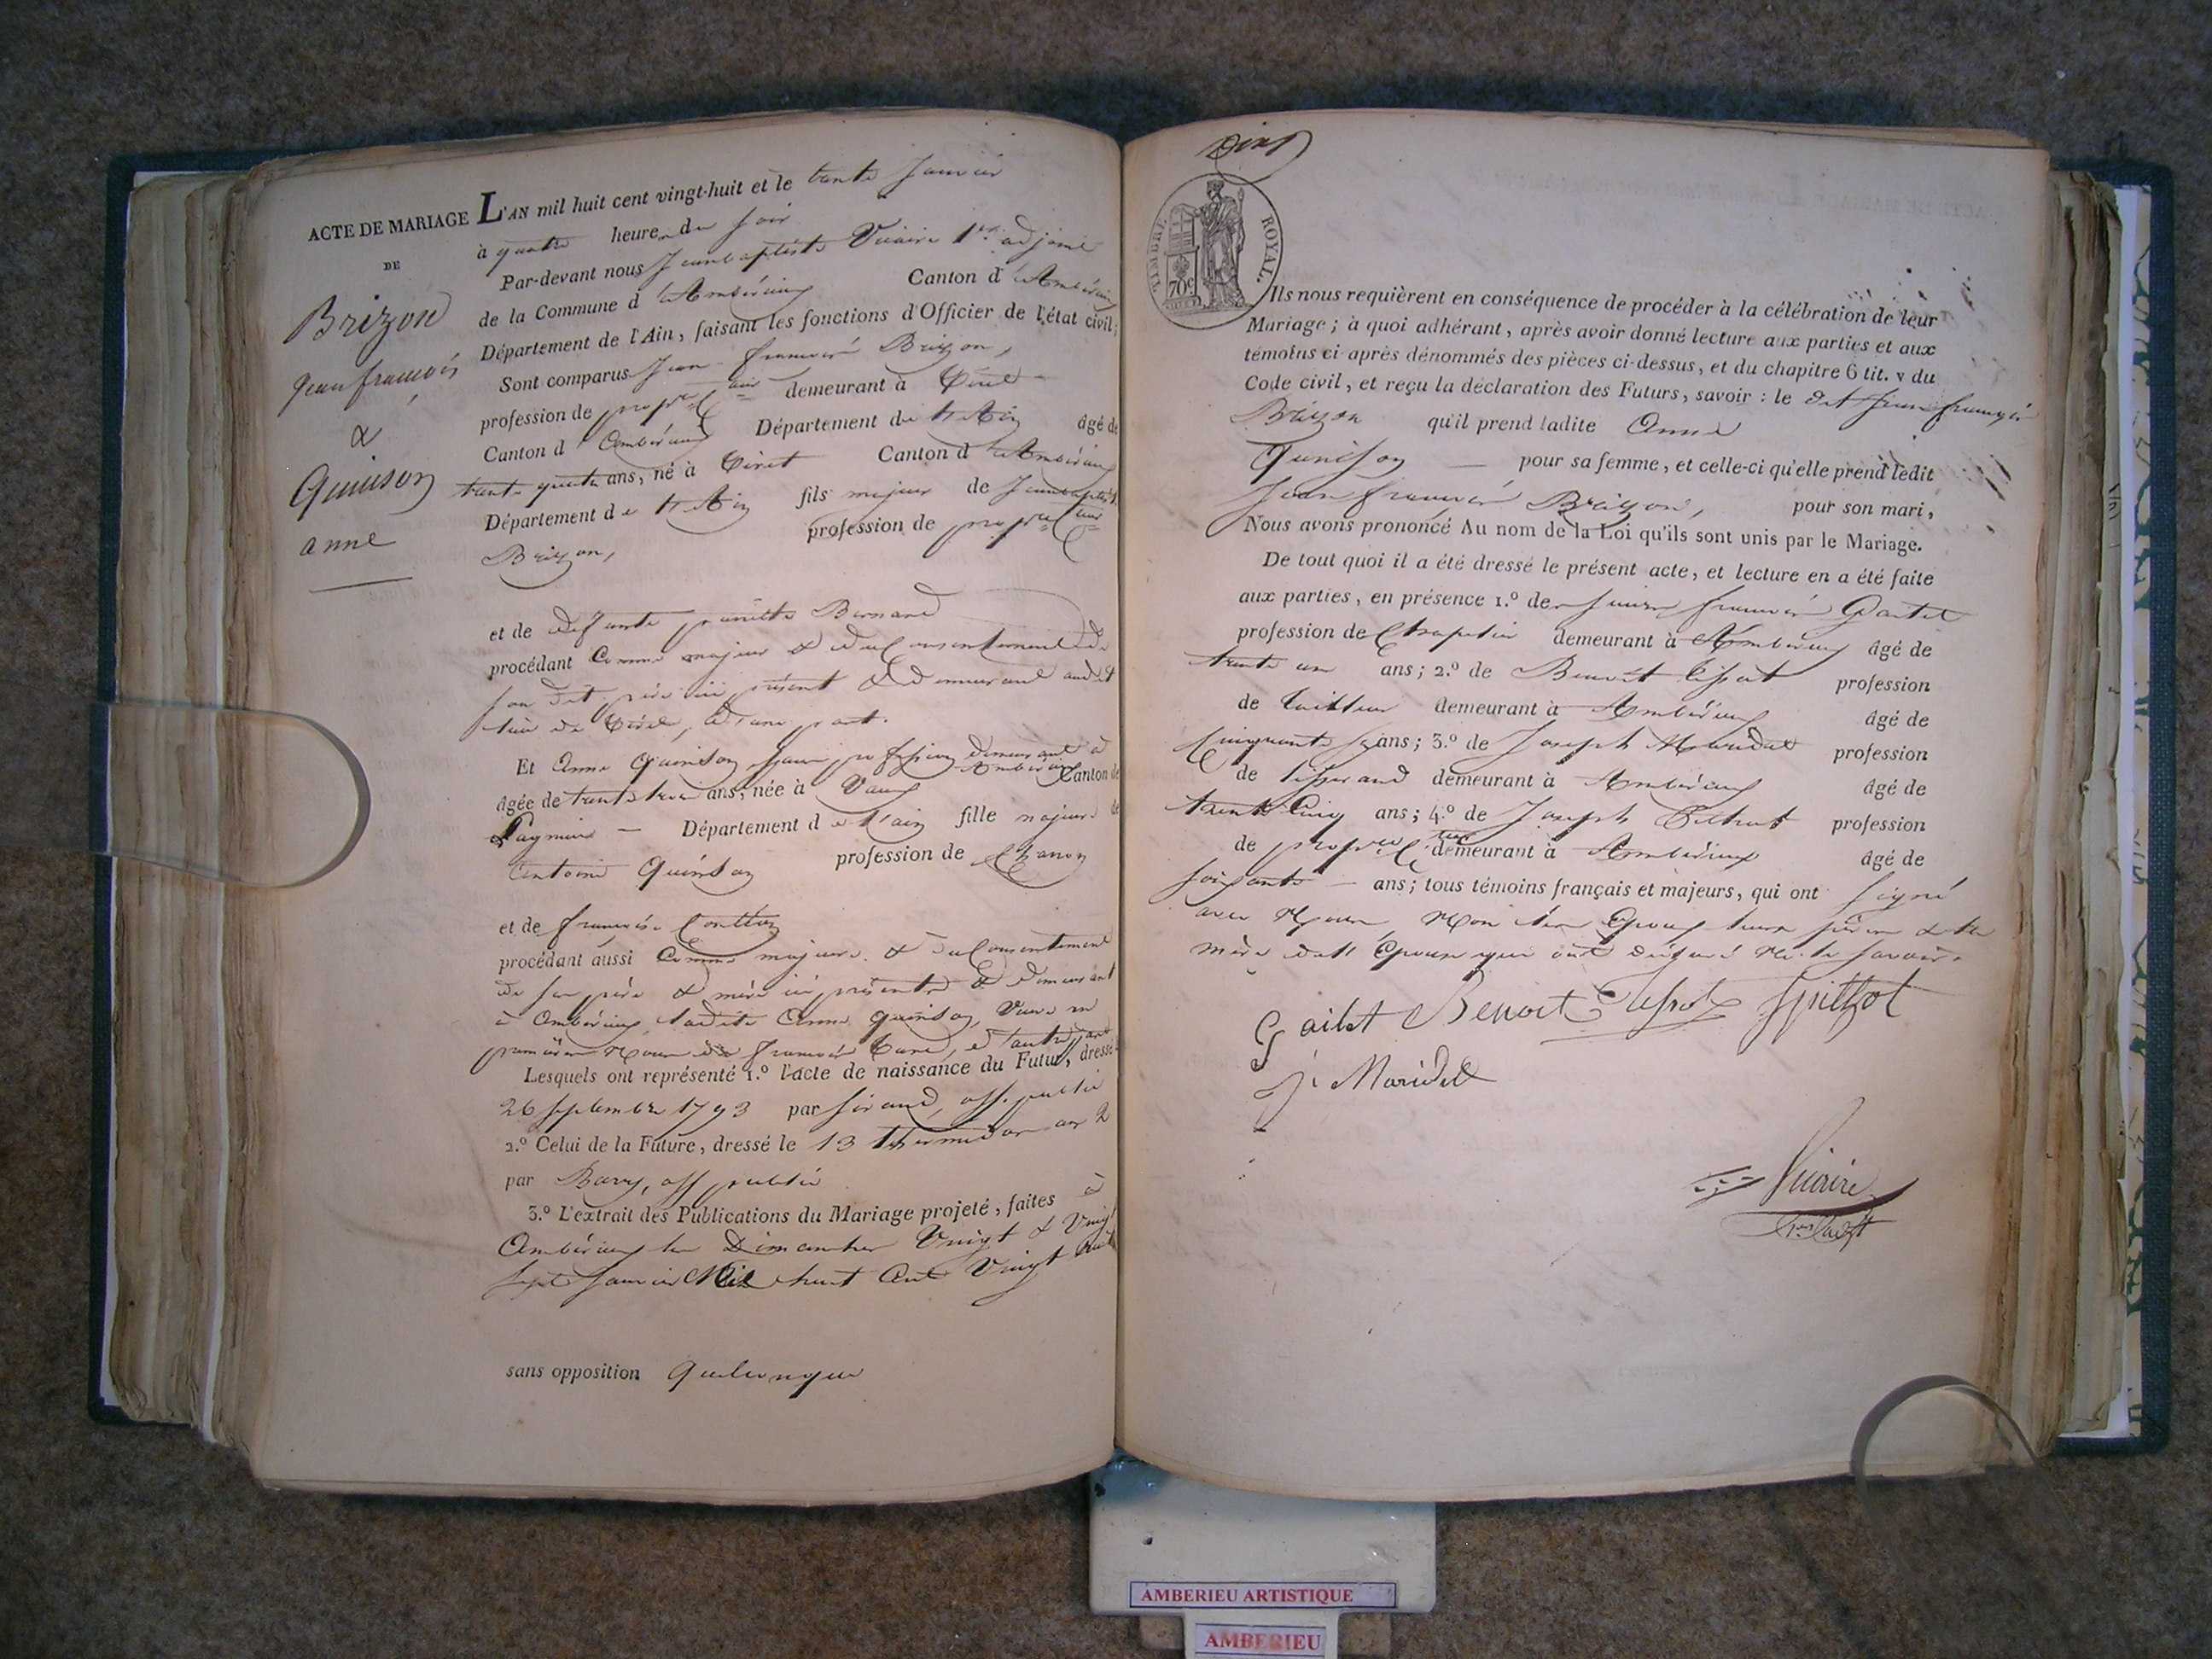 ACTE DE MARIAGE
DE
Brizon
jean françois
&
Quinson
anne
L'AN mil huit cent vingt-huit et le trente Janvier
à quatre heures du soir
Par-devant nous Jean baptiste Vicaire 1er adjoint
de la Commune d'Ambérieux Canton d'Ambérieux
Département de l'Ain, faisant les fonctions d'Officier de l'état civil;
Sont comparus Jean françois Brizon,
profession de demeurant à Tiret
Canton d'Ambérieux Département de l'Ain âgé de
trente quatre ans, né à Tiret Canton d'Ambérieux
Département de l'Ain fils majeur de Jean baptiste
Brizon, profession de
et de defunte Bernard
procédant comme majeur & du consentement de
son dit père ici présent & demeurant audit
lieu de Tiret, d'une part.
Et Anne Quinson sans profession demeurant à Ambérieux
âgée de trente trois ans, née à Vaux Canton de
Lagnieu — Département de l'ain fille majeure de
Antoine Quinson profession de
et de françoise
procédant aussi comme majeure & du consentement
de ses père & mère ici présents & demeurant
à Ambérieux, ladite Anne quinson, Veuve en
premières Noces de françois d'autre part
Lesquels ont représenté 1.º l'acte de naissance du Futur, dressé
26 septembre 1793 par off. public
2.º Celui de la Future, dressé le 13 thermidor an 2
par Barry, off public
3.º L'extrait des Publications du Mariage projeté, faites à
Ambérieux les Dimanches Vingt & Vingt
sept Janvier Mil huit Cent Vingt huit
sans opposition quelconque
TIMBRE ROYAL.
70c
Ils nous requièrent en conséquence de procéder à la célébration de leur
Mariage; à quoi adhérant, après avoir donné lecture aux parties et aux
témoins ci-après dénommés des pièces ci-dessus, et du chapitre 6 tit. v du
Code civil, et reçu la déclaration des Futurs, savoir : le dit Jean françois
Brizon qu'il prend ladite Anne
Quinson — pour sa femme, et celle-ci qu'elle prend ledit
Jean françois Brizon, pour son mari,
Nous avons prononcé Au nom de la Loi qu'ils sont unis par le Mariage.
De tout quoi il a été dressé le présent acte, et lecture en a été faite
aux parties, en présence 1.º de françois
profession de Chapelier demeurant à Ambérieux âgé de
trente un ans; 2.º de Benoît profession
de tailleur demeurant à Ambérieux âgé de
Cinquante ans; 3.º de Joseph Maridet profession
de tisserand demeurant à Ambérieux âgé de
trente Cinq ans; 4.º de Joseph profession
de demeurant à Ambérieux âgé de
soixante — ans; tous témoins français et majeurs, qui ont signé
avec Nous, Non les Epoux leurs pères & la
mère de l'Epouse qui ont déclaré Ne le savoir.
Benoit
j. Maridet
Vicaire